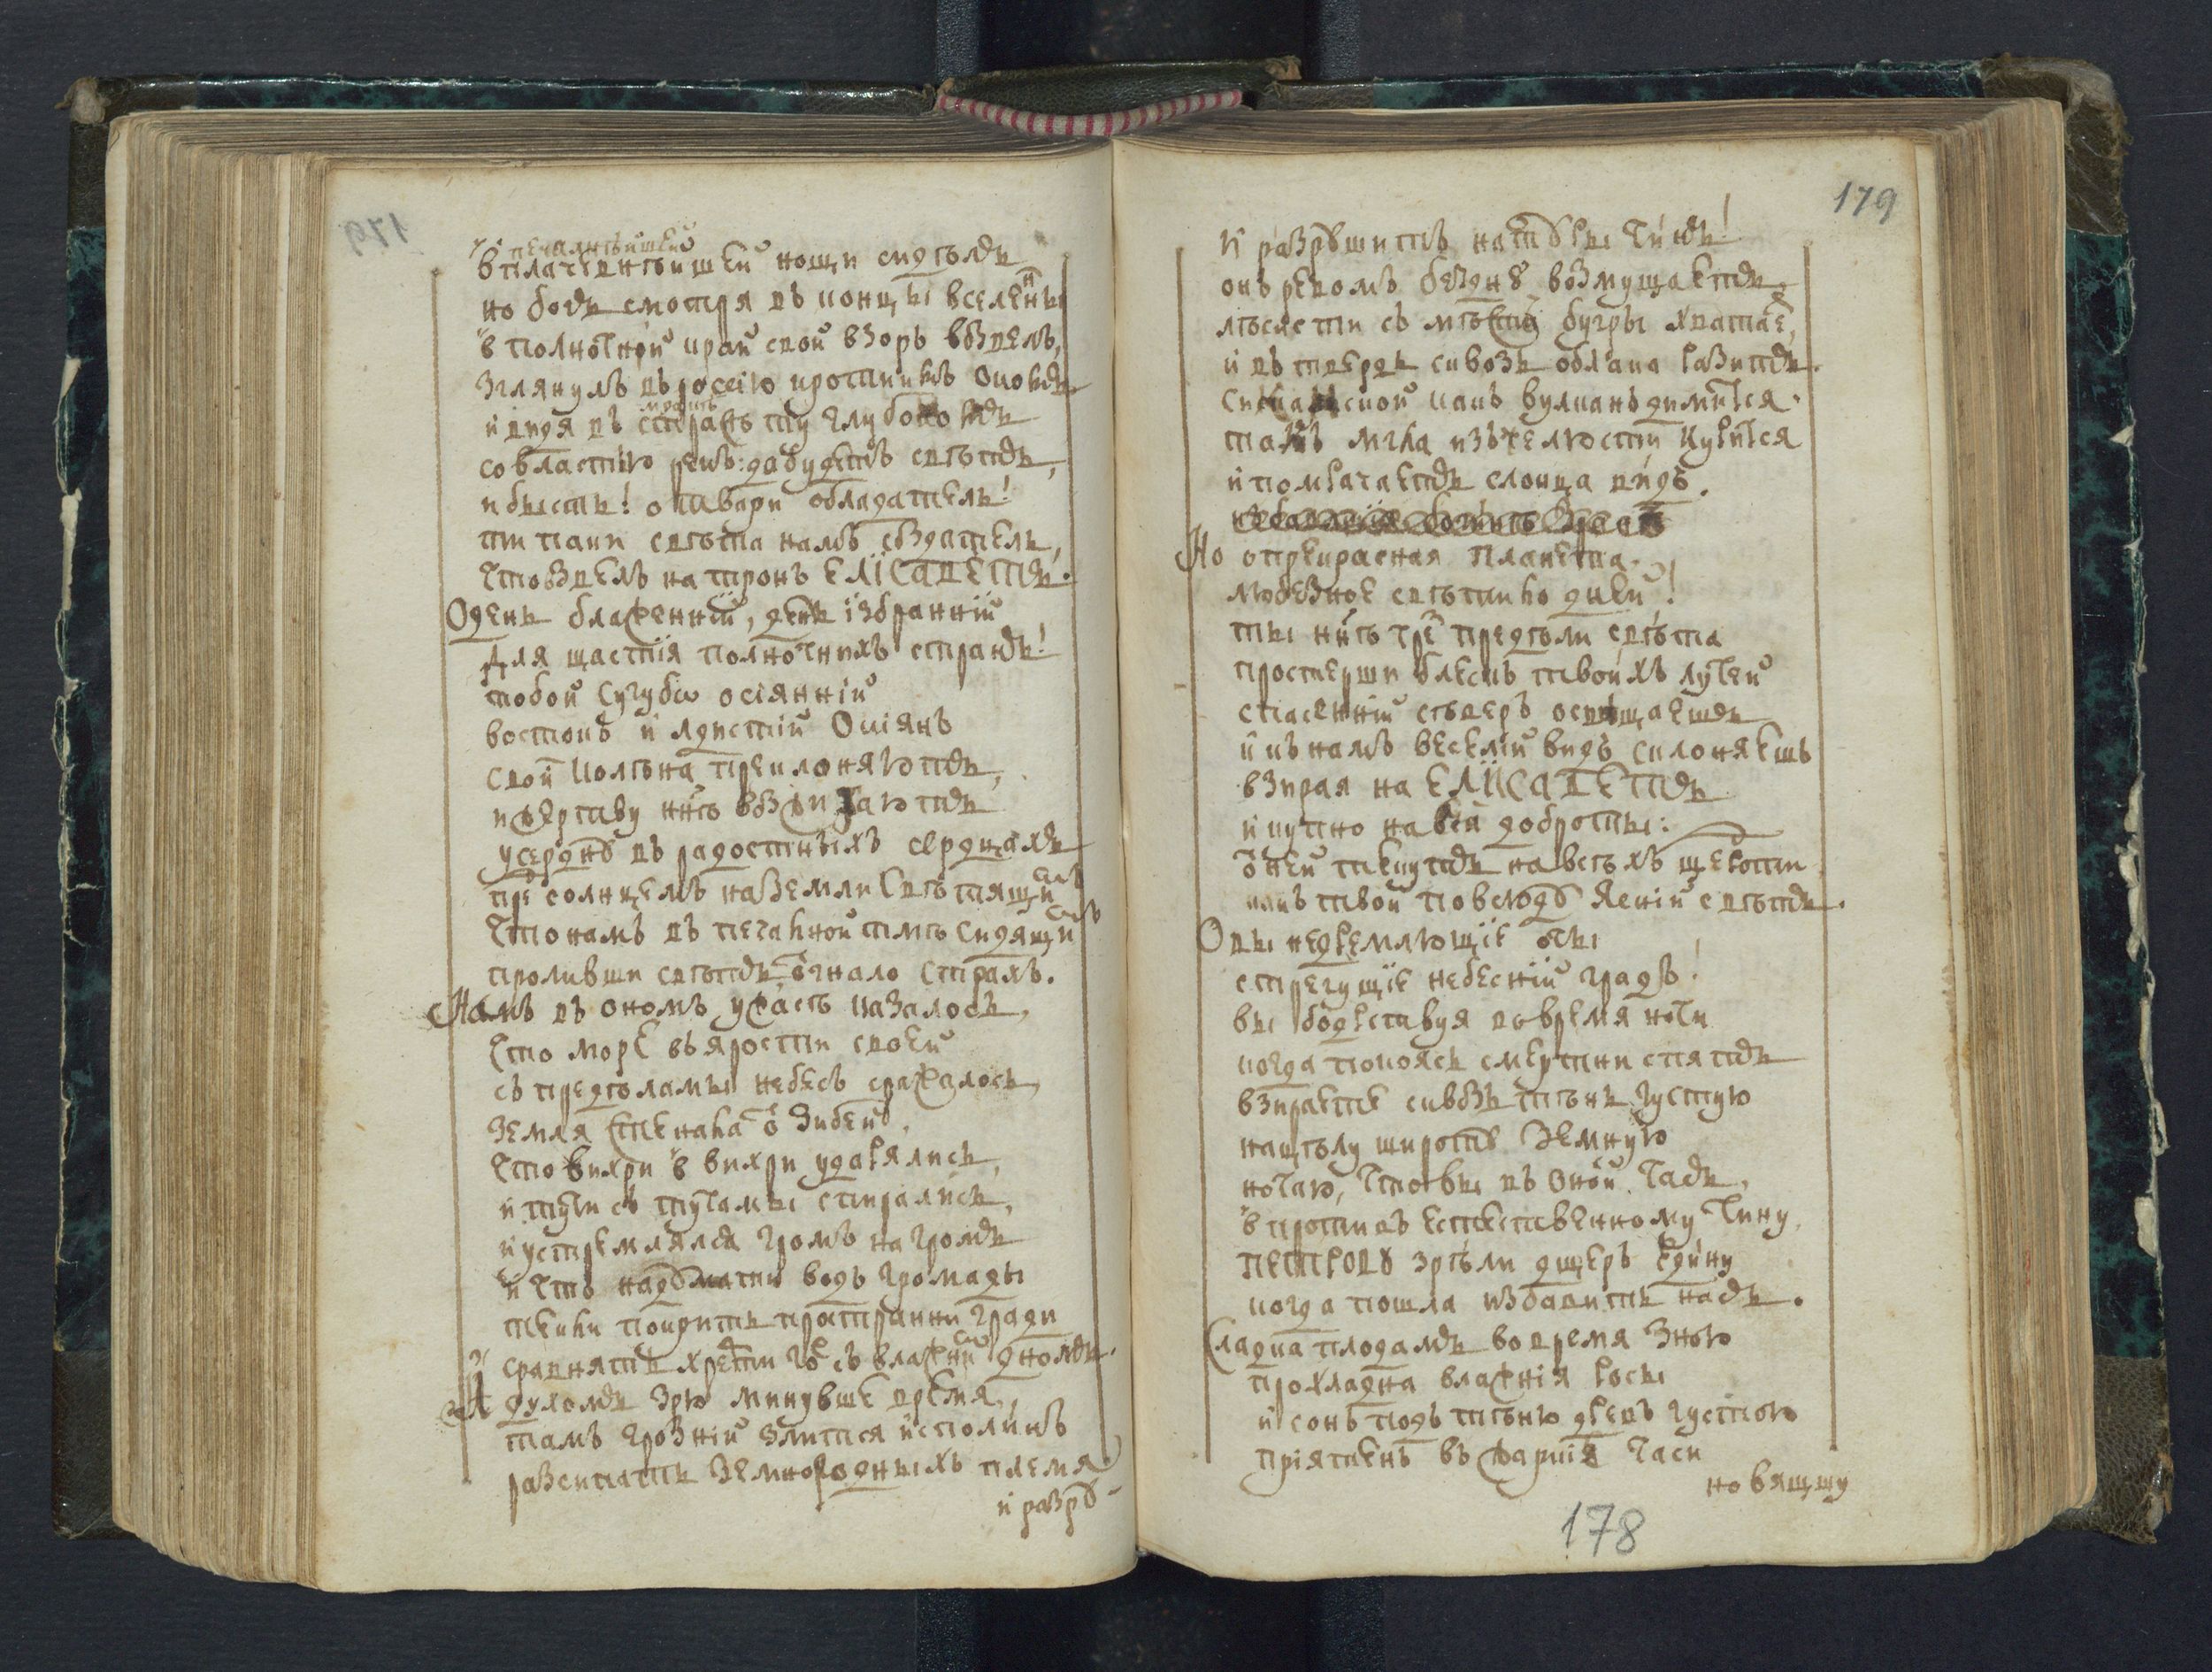 179
печалнѣйшей
в плачевнѣйшей нощи сидѣлъ
но богъ смотря въ концы вселенны
в полночной край свой взоръ возвелъ,
Зглянулъ въ россїю кроткимъ окомъ
и видя въ мракѣ ту глубокомъ
со властїю рекъ: да будетъ свѣтъ,
и бысть! о твари обладатель!
ти паки свѣта намъ создатель,
Что взвелъ на тронъ ЕЛІСАВЕТЪ.
О день блаженнїй, день їзбраннїй
Для щастїя полночнихъ странъ!
тобой сугубо осїяннїй
востокъ и лдистїй Окїянъ
свои колѣна преклоняютъ,
и жертву нынѣ возжигаютъ
усердну въ радостныхъ сердцахъ
пред солнцемъ на земли свѣтящимъ
Что намъ въ печалной тмѣ сидящимъ
проливши свѣтъ, отгнало страхъ.
Намъ въ ономъ ужасѣ казалось,
Что море въ ярости своей
съ предѣламы небесъ сражалось,
Земля стенала от зибей,
Что вихри в вихри ударялись,
и тучи съ тучамы спирались,
и устремлялся громъ на громъ
и что надути водъ громады
текли покрить пространни гради
сравнять хребти гор съ влажним дномъ.
Я духомъ зрю минувше время,
тамъ грознїй злится исполинъ
разсипать земнородныхъ племя
и разру-
179
И разрѣшить натуры чинъ!
онъ ревомъ бездну возмущаетъ,
лѣси сти съ мѣстъ бугры хватаетъ,
и въ твердь сквозь облака разитъ.
какъ вулканъ димится.
такъ мгла изъ челюсти курится
и помрачаетъ слонца видъ.
Но о прекрасная планета.
любезное свѣтило дней!
ты нынѣ чрез предѣли свѣта
простерши блескъ твоихъ лучей
спасеннїй сѣверъ освѣщаешь
и къ намъ веселїй видъ склоняешь
взирая на ЕЛИСАВЕТЪ
и купно на ея доброты:
от ней текутъ на всѣхъ щедроти
какъ твой повсюду ясній свѣтъ.
О вы недремлющїе очы
стрегущїе небеснїй градъ!
вы бодрствуя во время ночи
когда покоясь смертни спятъ
взираете сквозь тѣнь густую
на цѣлу широту земную
но чаю, что вы въ оной часъ,
в противъ естественному чину,
ПЕТРОВУ зрѣли дщерь едину
когда пошла избавить насъ.
Сладка плодамъ во время зною
прохладна влажнїя росы
и сонъ подъ тѣнью древъ густою
прїятенъ въ жаркїя часи
но вящщу
178